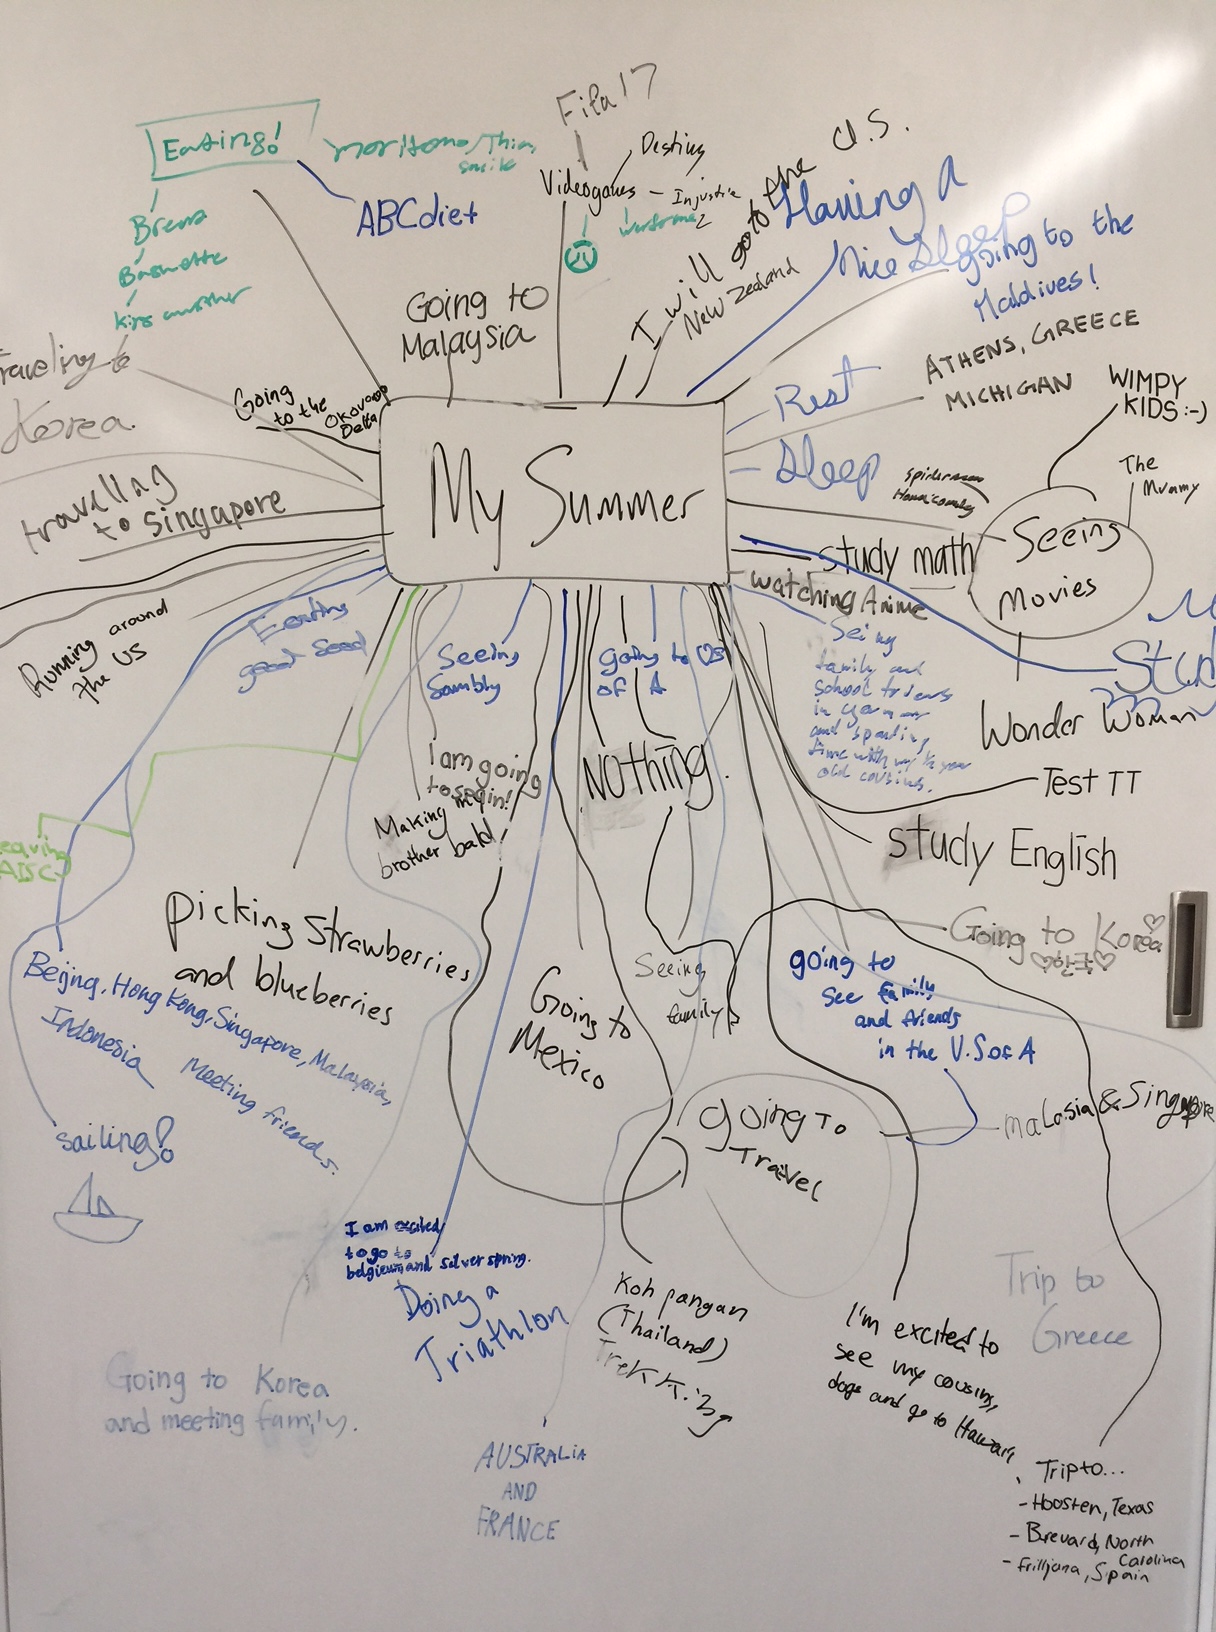 Fifa 17
Destiny
Videogames - Injustice
2
Eating!
ABC diet
Going to
Malaysia
I will go to the U.S.
New Zealand
Having a
Nice Sleep
going to the
Maldives!
ATHENS, GREECE
MICHIGAN
Rest
Sleep
WIMPY
KIDS :-)
The
Mummy
Seeing
movies
Wonder Woman
Traveling to
Korea.
Going
to the
Okovango
Delta
travelling
to singapore
My Summer
study math
watching Anime
Stud
Running around
the US
Eating
good food
Seeing
Sambly
going to US
of A
Seing
family and
school friends
in Germany
and spending
time with my ½ year
old cousins.
Test TT
study English
NOTHING.
I am going
to segin!
Making my
brother bald
Leaving
AISC
picking strawberries
and blueberries
Beijing, Hong Kong, Singapore, Malaysia,
Indonesia
Meeting friends.
sailing?
Going to
Mexico
Seeing
family
going to
see family
and friends
in the U.S of A
Going to Korea
한국
going To
Travel
malasia & Singapore
I am excited
to go to
belgieum and silver spring.
Doing a
Triathlon
Koh pangan
(Thailand)
Trekking
I'm excited to
see my cousins,
dogs and go to Hawaii
Trip to
Greece
Going to Korea
and meeting family.
AUSTRALiA
AND
FRANCE
Trip to...
- Hoosten, Texas
- Brevard, North
Carolina
- Frilljana, Spain